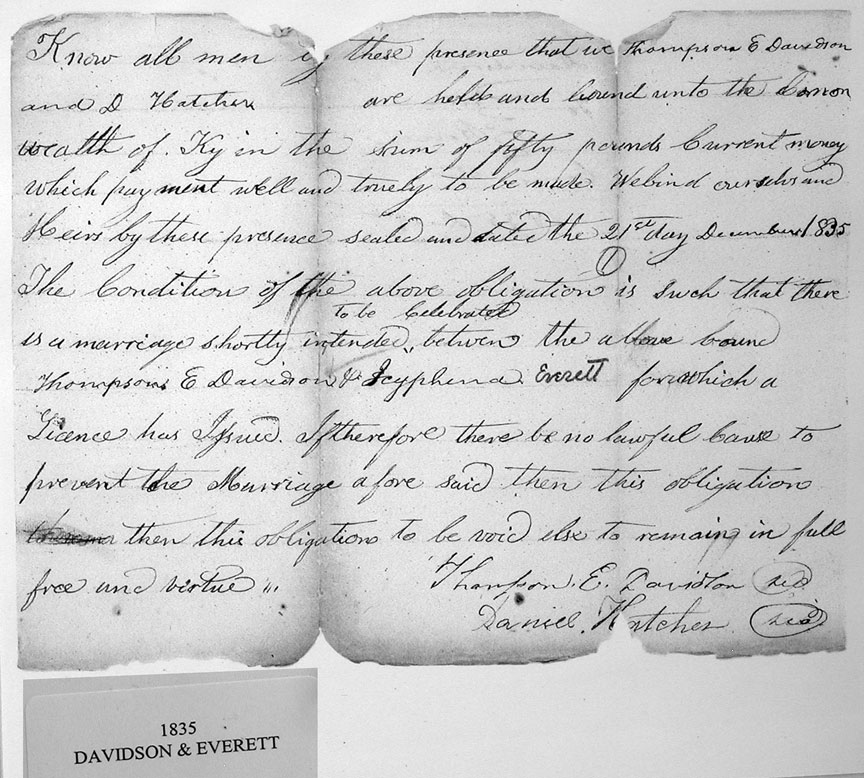 Know all men by these presence that we Thompson E Davidson
and D Hatcher are held and bound unto the Common
wealth of Ky in the Sum of fifty pounds Current money
which payment well and truely to be made. We bind ourselvs and
Heirs by these presence sealed and dated the 21st day December 1835
The Condition of the above obligation is such that there
to be Celebrated
is a marriage shortly intended betwen the above bound
Thompson E Davidson & Everett for which a
Licence has Issued. If therefore there be no lawful Cause to
prevent the Marriage afore said then this obligation
then this obligation to be void else to remain in full
free and virtue "
Thompson. E. Davidson
Daniel. Hatcher
1835
DAVIDSON & EVERETT